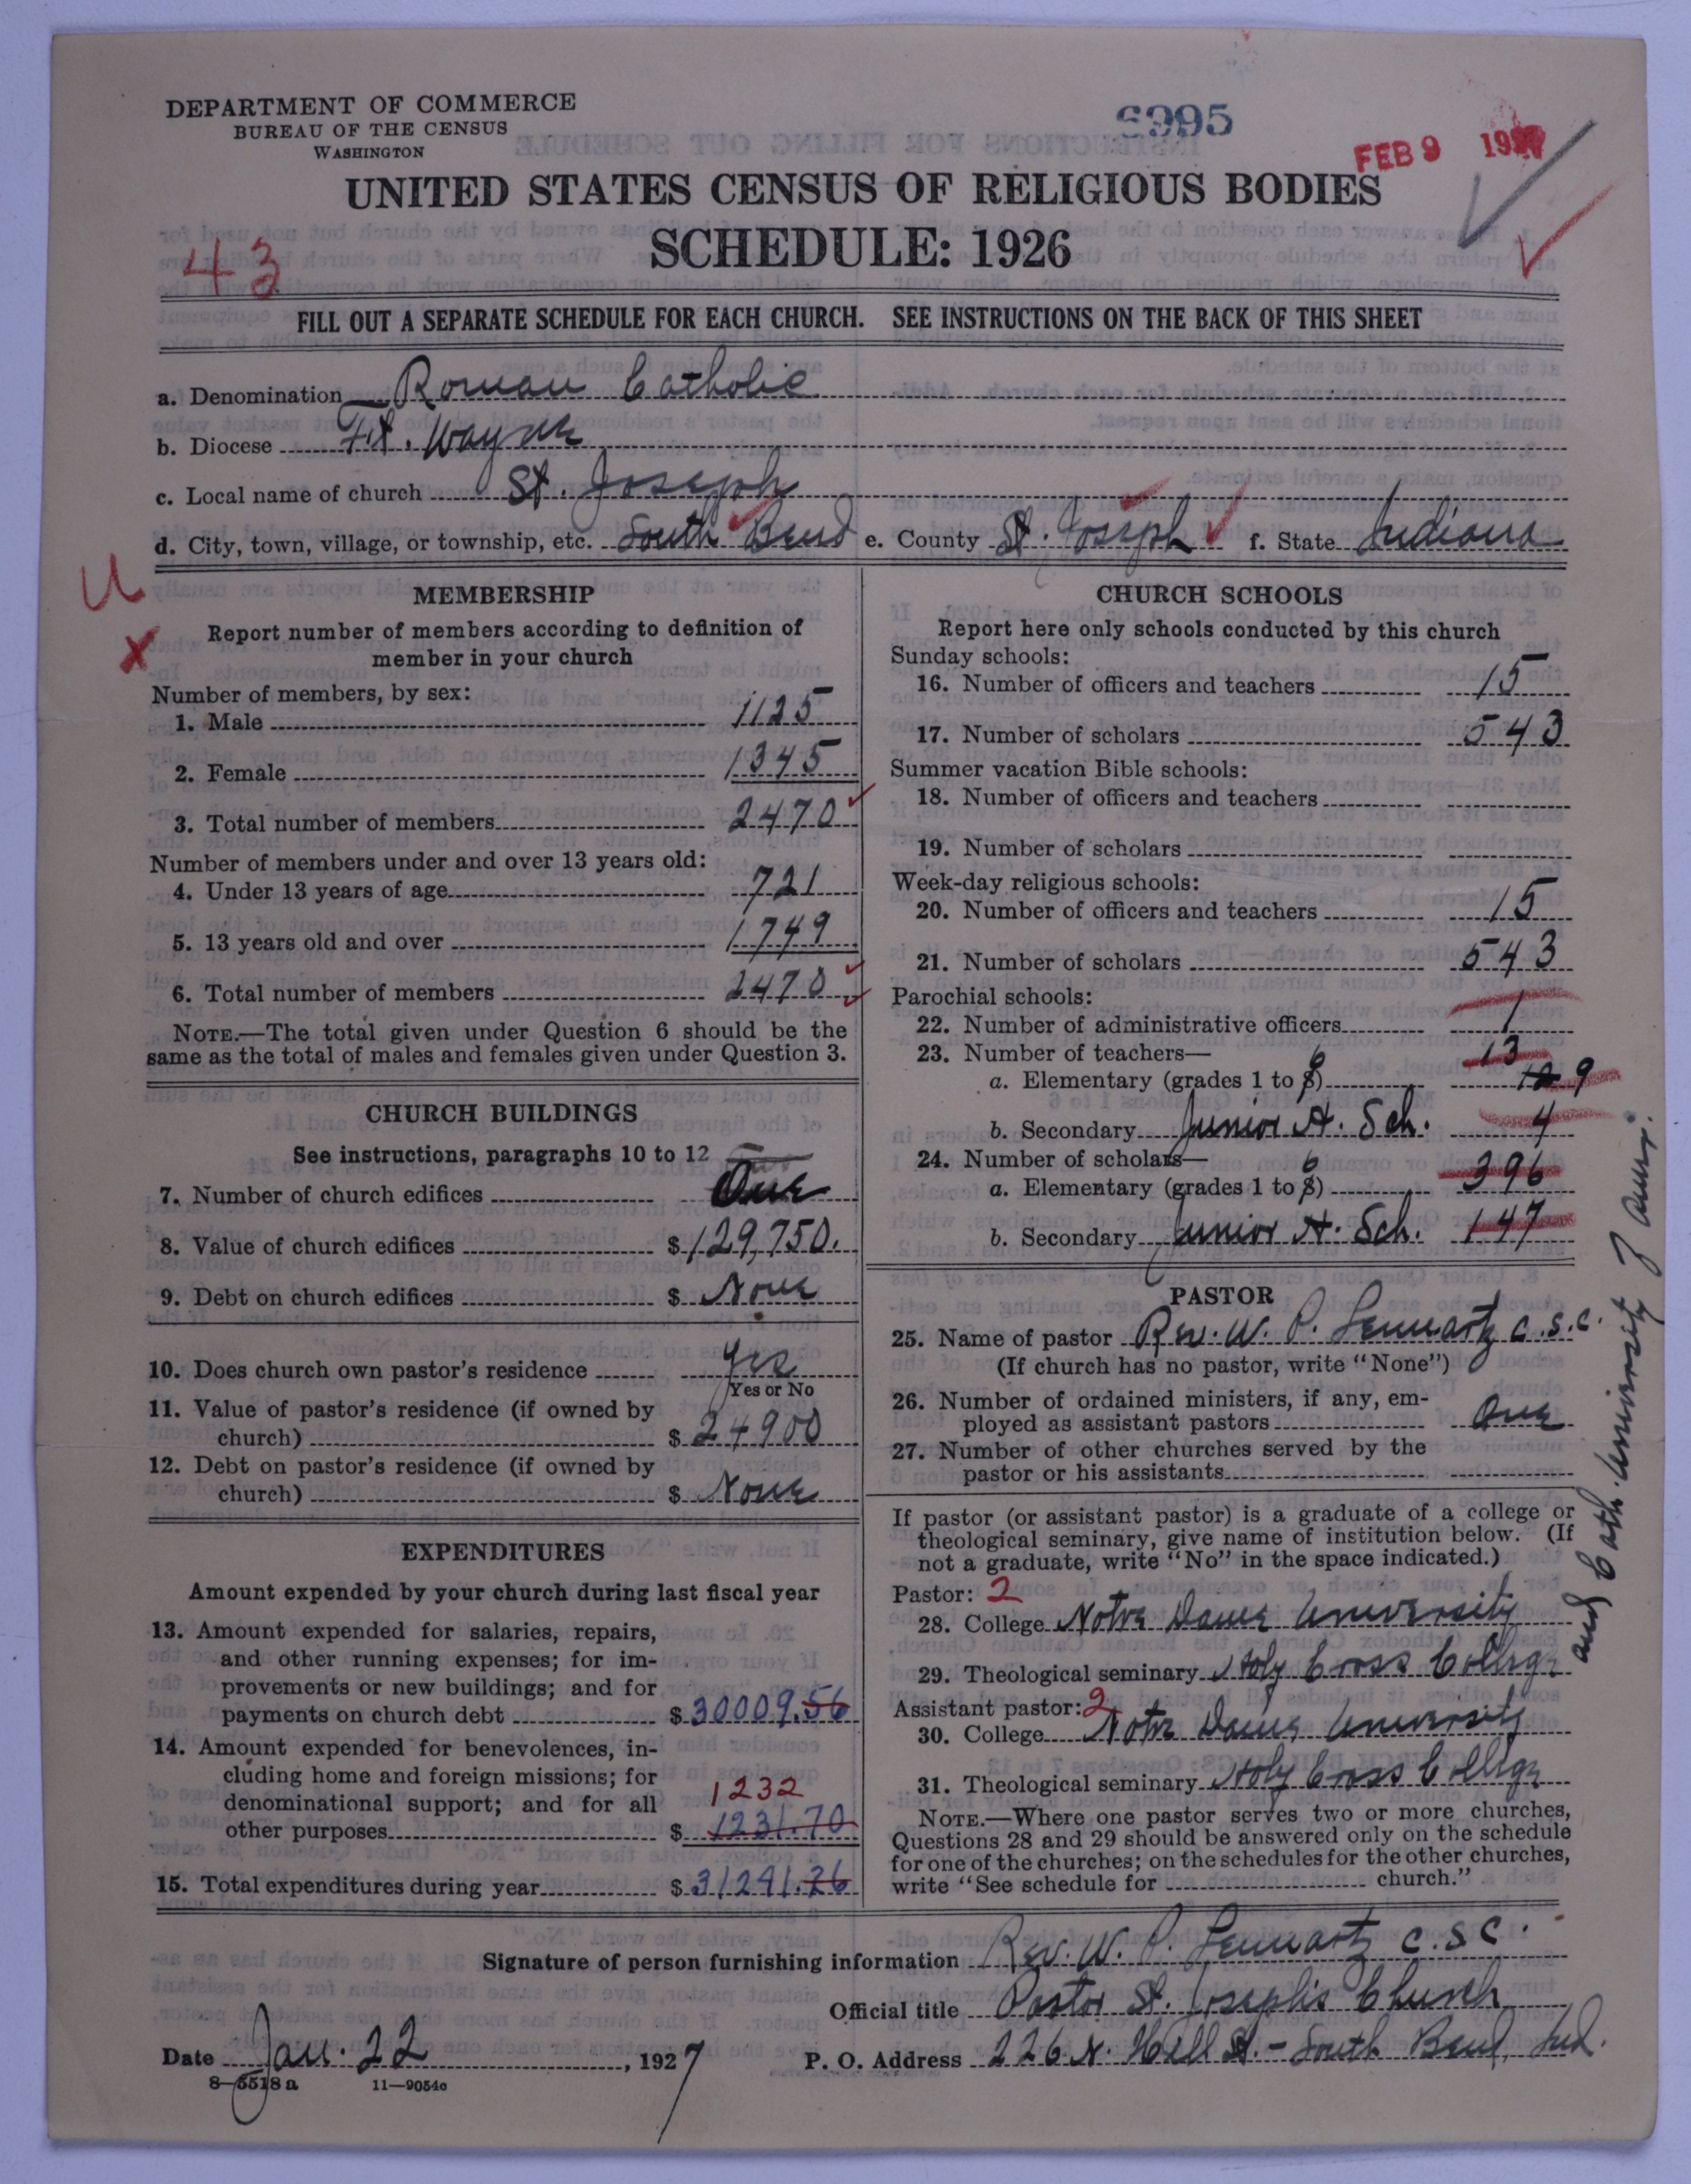 DEPARTMENT OF COMMERCE
BUREAU OF THE CENSUS
WASHINGTON
6995
FEB 9 1927
UNITED STATES CENSUS OF RELIGIOUS BODIES
SCHEDULE: 1926
43
FILL OUT A SEPARATE SCHEDULE FOR EACH CHURCH. SEE INSTRUCTIONS ON THE BACK OF THIS SHEET
a. Denomination Roman Catholic
b. Diocese Ft. Wayne
c. Local name of church St. Joseph
d. City, town, village, or township, etc. South Bend e. County St. Joseph f. State Indiana
U
x
MEMBERSHIP
Report number of members according to definition of
member in your church
Number of members, by sex:
1. Male 1125
2. Female 1345
3. Total number of members 2470
Number of members under and over 13 years old:
4. Under 13 years of age 721
5. 13 years old and over 1749
6. Total number of members 2470
NOTE.—The total given under Question 6 should be the
same as the total of males and females given under Question 3.
CHURCH BUILDINGS
See instructions, paragraphs 10 to 12
7. Number of church edifices One
8. Value of church edifices $129,750.
9. Debt on church edifices $ None
10. Does church own pastor's residence Yes
Yes or No
11. Value of pastor's residence (if owned by
church) $24900
12. Debt on pastor's residence (if owned by
church) $ None
EXPENDITURES
Amount expended by your church during last fiscal year
13. Amount expended for salaries, repairs,
and other running expenses; for im-
provements or new buildings; and for
payments on church debt $30009.56
14. Amount expended for benevolences, in-
cluding home and foreign missions; for
denominational support; and for all
1232
other purposes $ 1231.70
15. Total expenditures during year $31241.26
CHURCH SCHOOLS
Report here only schools conducted by this church
Sunday schools:
16. Number of officers and teachers 15
17. Number of scholars 543
Summer vacation Bible schools:
18. Number of officers and teachers
19. Number of scholars
Week-day religious schools:
20. Number of officers and teachers 15
21. Number of scholars 543
Parochial schools:
22. Number of administrative officers 1
23. Number of teachers— 6 13
a. Elementary (grades 1 to 8) 9
b. Secondary Junior H. Sch. 4
24. Number of scholars— 6
a. Elementary (grades 1 to 8) 396
b. Secondary Junior H. Sch. 147
PASTOR
25. Name of pastor Rev. W. P. Lennartz C.S.C.
(If church has no pastor, write "None")
26. Number of ordained ministers, if any, em-
ployed as assistant pastors One
27. Number of other churches served by the
pastor or his assistants
If pastor (or assistant pastor) is a graduate of a college or
theological seminary, give name of institution below. (If
not a graduate, write "No" in the space indicated.)
Pastor: 2
28. College Notre Dame University
29. Theological seminary Holy Cross College
and Cath. University of Amer.
Assistant pastor: 2
30. College Notre Dame University
31. Theological seminary Holy Cross College
NOTE.—Where one pastor serves two or more churches,
Questions 28 and 29 should be answered only on the schedule
for one of the churches; on the schedules for the other churches,
write "See schedule for church."
Signature of person furnishing information Rev. W. P. Lennartz C.S.C.
Official title Pastor St. Joseph's Church
Date Jan. 22, 1927 P. O. Address 226 N. Hill St. - South Bend, Ind.
8—5518 a 11—9054c